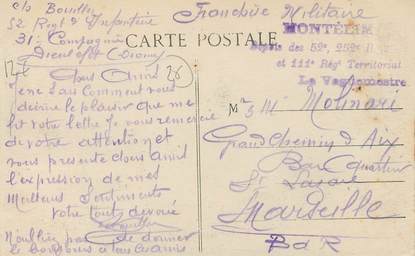 c/o Bouillu
52 Regt d'Infanterie
31e Compagnie
Dieulefit (Drome)
Franchise Militaire
CARTE POSTALE
MONTÉLIMAR
Dépôts des 52e, 252e
et 111e Régt Territorial
Le Vaguemestre
Chers Amis
Je ne sais comment vous
décrire le plaisir que me
fit votre lettre Je vous remercie
de votre attention et
vous présente chers amis
l'expression de mes
Meilleurs Sentiments
votre tout dévoué
N'oubliez pas de donner
le bonjour à
M
Molinari
Grand chemin d'Aix
Bar quartier
St Lazare
Marseille
BdR